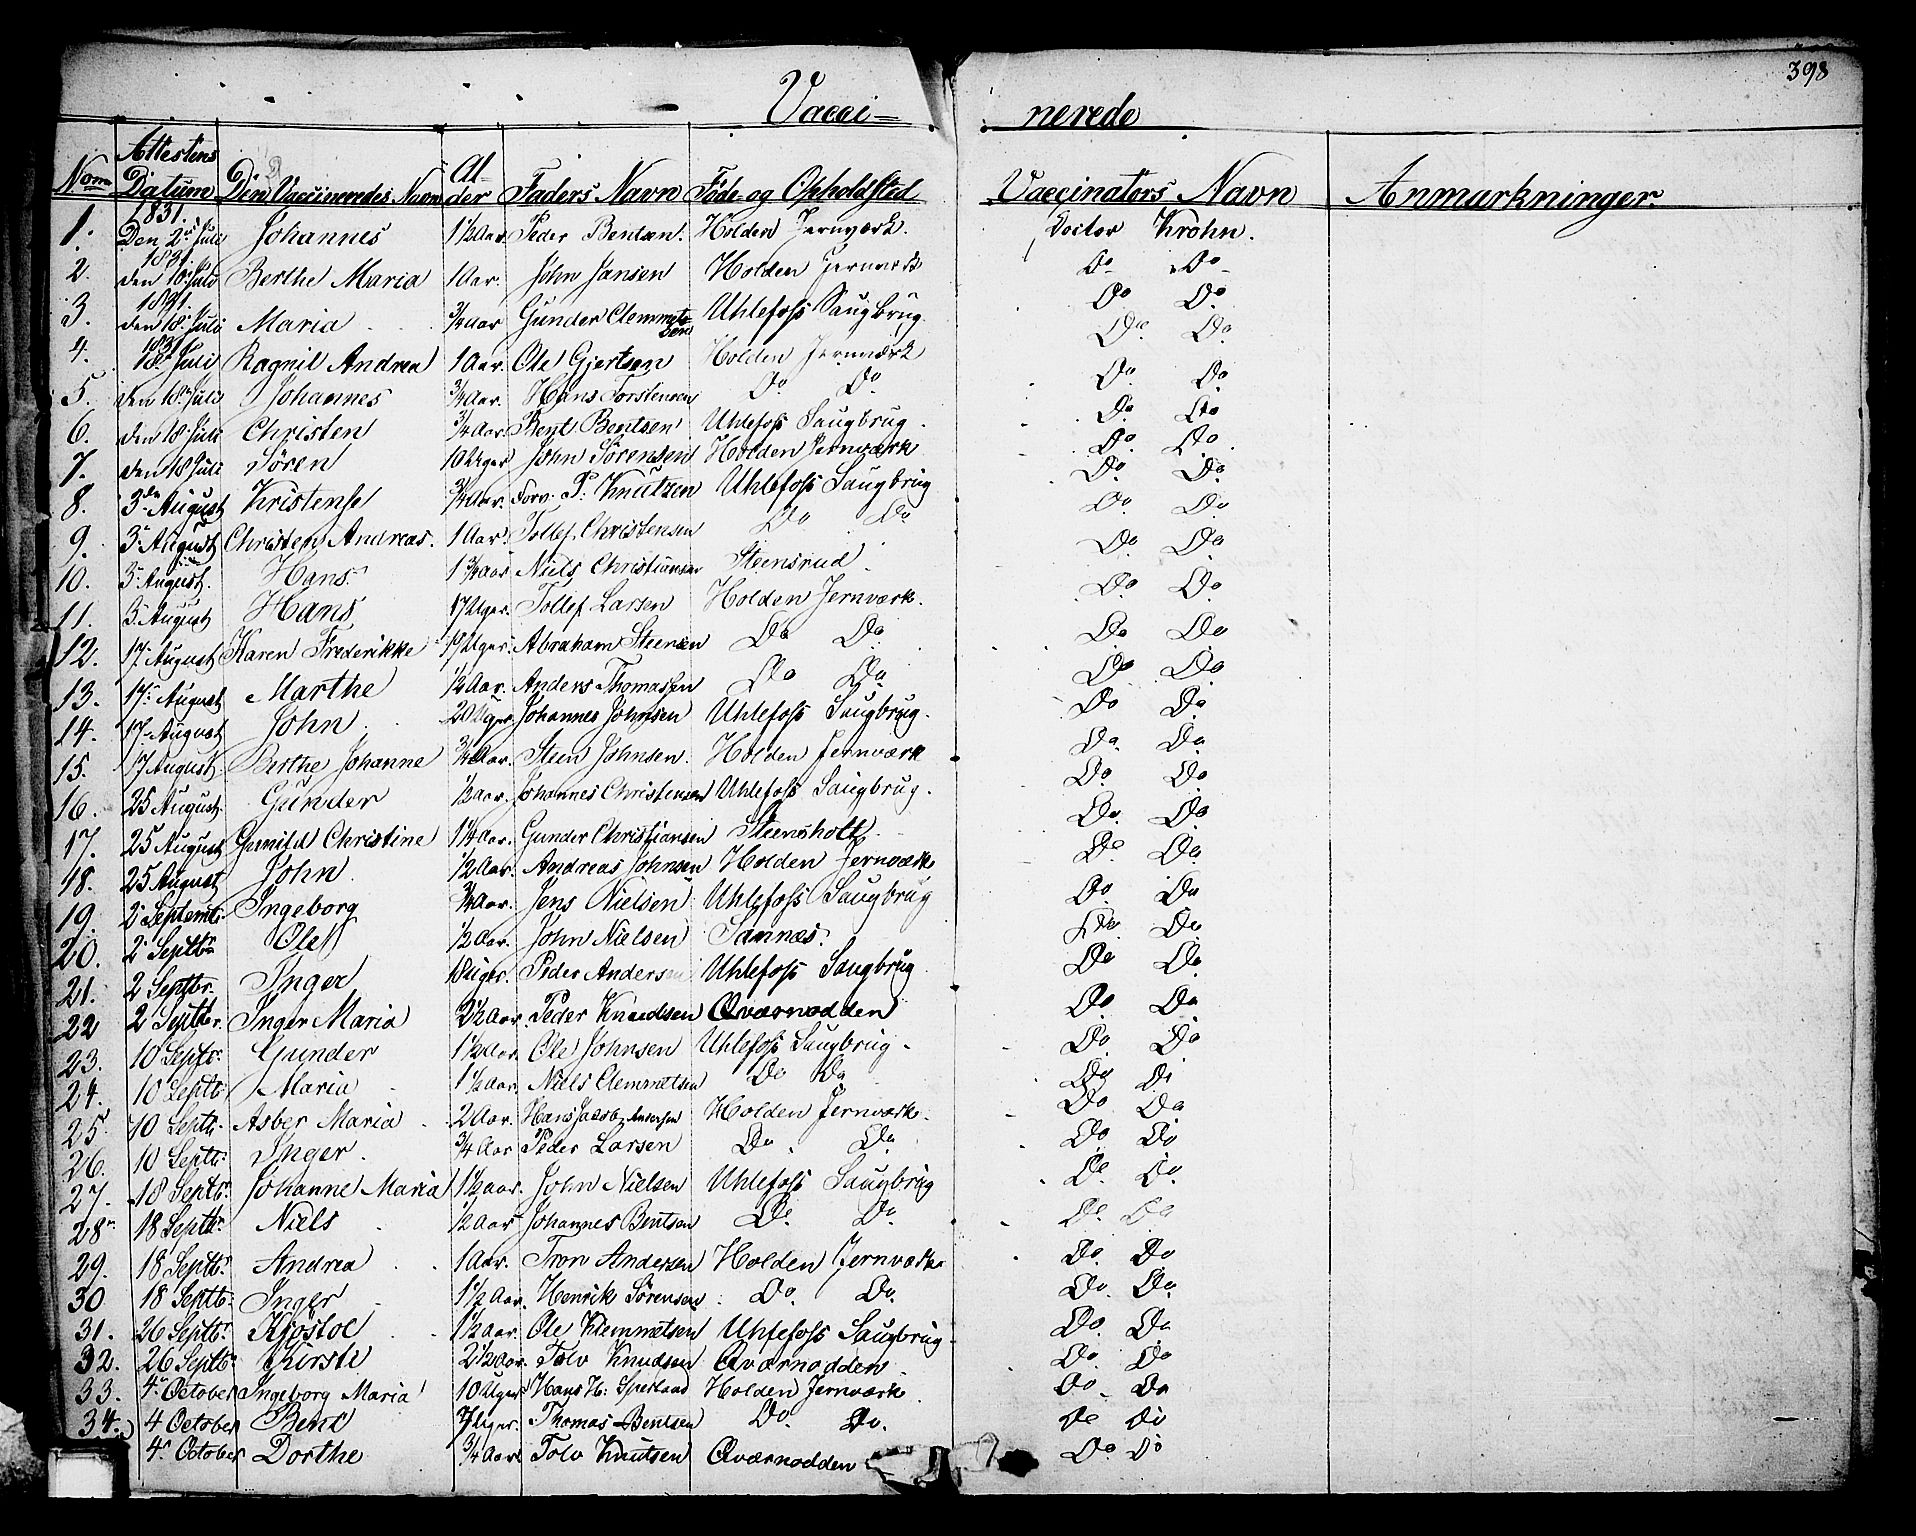 398
Vacci- nerede
Nom Attestens Datum Den Vaccineredes Navn Al- der Faders Navn Föde og Opholdsted Vaccinators Navn Anmærkninger
1. 1831. Den 2 Juli Johannes 1½ Aar Peder Bentsen. Holden Jernværk. Doctor Krohn.
2. 1831. den 18 Juli Berthe Maria 1 Aar. John Jansen Holden Jernværk Do Do
3. 1831. den 18 Juli Maria ¾ Aar Gunder Clemmetsen Uhlefoss Saugbrug Do Do
4. 1831. 18 Juli Ragnil Andrea 1 Aar. Ole Gjertsen Holden Jernværk Do Do
5. den 18 Juli Johannes ¾ Aar. Hans Torstensen Do Do Do Do
6. den 18 Juli Christen ¾ Aar. Bent Bentsen Uhlefoss Saugbrug. Do Do
7. den 18 Juli Sören 10 Uger John Sörensen Holden Jernværk Do Do
8. 3de August Kristense ¾ Aar. Forv. P: Knutzen Uhlefoss Saugbrug Do Do
9. 3 August Christen Andreas. 1 Aar. Tollef Christensen Do Do Do Do
10. 3 August. Hans. 1¾ Aar Niels Christiansen Steensrud Do Do
11. 3 August Hans 17 Uger. Tollef Larsen Holden Jernværk. Do Do
12. 17 August Karen Frederikke 19 Uger. Abraham Steensen Do Do Do Do
13. 17 August Marthe ½ Aar. Anders Thomassen Do Do Do Do
14. 17 August John 20 Uger. Johannes Johnsen Uhlefoss Saugbrug. Do Do
15. 17 August. Berthe Johanne ¾ Aar. Steen Johnsen. Holden Jernværk Do Do
16. 25 August. Gunder ½ Aar. Johannes Christensen Uhlefoss Saugbrug. Do Do
17. 25 August Gunild Christine 1¼ Aar. Gunder Christjansen Steensholt Do. Do.
18. 25 August John. ½ Aar. Andreas Johnsen Holden Jernværk Do Do
19. 2 Septemb: Ingeborg ¾ Aar. Jens Nielsen Uhlefoss Saugbrug Do Do
20. 2 Septbr Ole ½ Aar. John Nielsen Sannæs. Do Do
21. 2 Septbr. Inger 18 Uger. Peder Andersen Uhlefoss Saugbrug Do Do
22 2 Septber. Inger Maria 2½ Aar. Peder Knudsen Qværnodden Do Do
23. 10 Septbr. Gunder 1½ Aar. Ole Johnsen Uhlefoss Saugbrug. Do Do
24. 10 Septb: Maria 1½ Aar. Niels Clemmetsen Do Do Do Do
25. 10 Septb. Asber Maria 2 Aar. Hans Jacob Andersen Holden Jernværk. Do Do
26. 10 Septb: Inger. ¾ Aar Peder Larsen Do Do Do Do
27. 18 Septbr. Johanne Maria 1½ Aar. John Nielsen Uhlefoss Saugbrug Do Do
28 18 Septbr Niels ½ Aar Johannes Bentsen Do. Do. Do Do
29. 18 Septbr. Andrea 1 Aar. Tron Andersen Holden Jernværk Do Do
30 18 Septb: Inger 1½ Aar. Henrik Sörensen Do. Do. Do Do
31. 26 Septbr Kjöstol 1½ Aar. Ole Klemmetsen Uhlefoss Saugbrug. Do. Do
32. 26 Septbr Kirsti 2½ Aar. Tolv Knudsen Qværnodden. Do Do
33. 4 October Ingeborg Maria 10 Uger Hans H: Holden Jernværk Do. Do
34. 4 October Bent Uger. Thomas Bentsen Do. Do. Do Do
4 October Dorthe ¾ Aar Tolv Knutsen Qværnodden Do Do